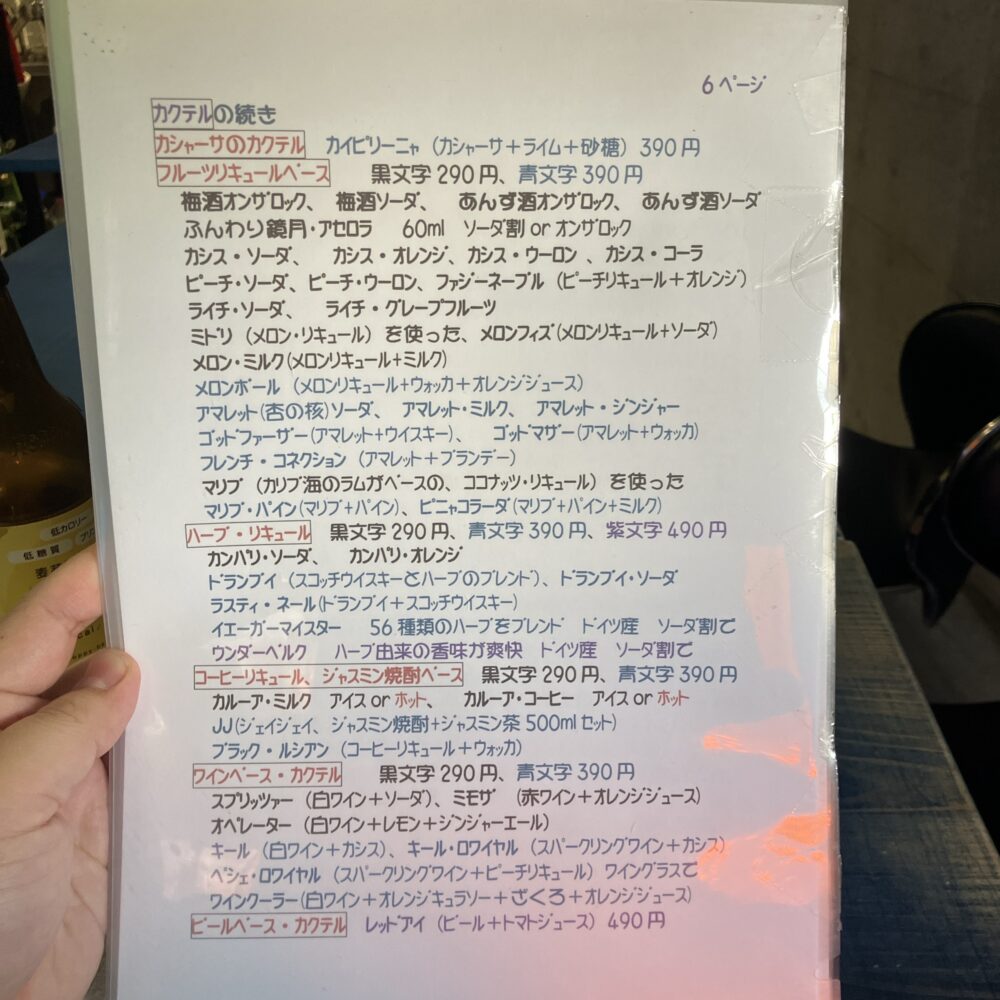 6ページ
カクテルの続き
カシャーサのカクテル カイピリーニャ（カシャーサ＋ライム＋砂糖）390円
フルーツリキュールベース 黒文字290円、青文字390円
梅酒オンザロック、 梅酒ソーダ、 あんず酒オンザロック、 あんず酒ソーダ
ふんわり鏡月・アセロラ 60ml ソーダ割 or オンザロック
カシス・ソーダ、 カシス・オレンジ、カシス・ウーロン 、カシス・コーラ
ピーチ・ソーダ、ピーチ・ウーロン、ファジーネーブル（ピーチリキュール＋オレンジ）
ライチ・ソーダ、 ライチ・グレープフルーツ
ミドリ（メロン・リキュール）を使った、メロンフィズ(メロンリキュール+ソーダ)
メロン・ミルク(メロンリキュール+ミルク)
メロンボール（メロンリキュール+ウォッカ＋オレンジジュース）
アマレット(杏の核)ソーダ、 アマレット・ミルク、 アマレット・ジンジャー
ゴッドファーザー(アマレット+ウイスキー)、 ゴッドマザー(アマレット+ウォッカ)
フレンチ・コネクション（アマレット＋ブランデー）
マリブ（カリブ海のラムがベースの、ココナッツ・リキュール）を使った
マリブ・パイン(マリブ＋パイン)、ピニャコラーダ(マリブ＋パイン＋ミルク)
ハーブ・リキュール 黒文字290円、青文字390円、紫文字490円
カンパリ・ソーダ、 カンパリ・オレンジ
ドランブイ（スコッチウイスキーとハーブのブレンド）、ドランブイ・ソーダ
ラスティ・ネール(ドランブイ＋スコッチウイスキー)
イエーガーマイスター 56種類のハーブをブレンド ドイツ産 ソーダ割で
ウンダーベルク ハーブ由来の香味が爽快 ドイツ産 ソーダ割で
コーヒーリキュール、ジャスミン焼酎ベース 黒文字290円、青文字390円
カルーア・ミルク アイス or ホット、 カルーア・コーヒー アイス or ホット
JJ(ジェイジェイ、ジャスミン焼酎+ジャスミン茶500mlセット)
ブラック・ルシアン（コーヒーリキュール＋ウォッカ）
ワインベース・カクテル 黒文字290円、青文字390円
スプリッツァー（白ワイン＋ソーダ）、ミモザ （赤ワイン＋オレンジジュース）
オペレーター（白ワイン＋レモン＋ジンジャーエール）
キール（白ワイン＋カシス）、キール・ロワイヤル（スパークリングワイン＋カシス）
ペシェ・ロワイヤル（スパークリングワイン＋ピーチリキュール）ワイングラスで
ワインクーラー(白ワイン＋オレンジキュラソー＋ざくろ＋オレンジジュース)
ビールベース・カクテル レッドアイ（ビール＋トマトジュース）490円
低カロリー
低糖質